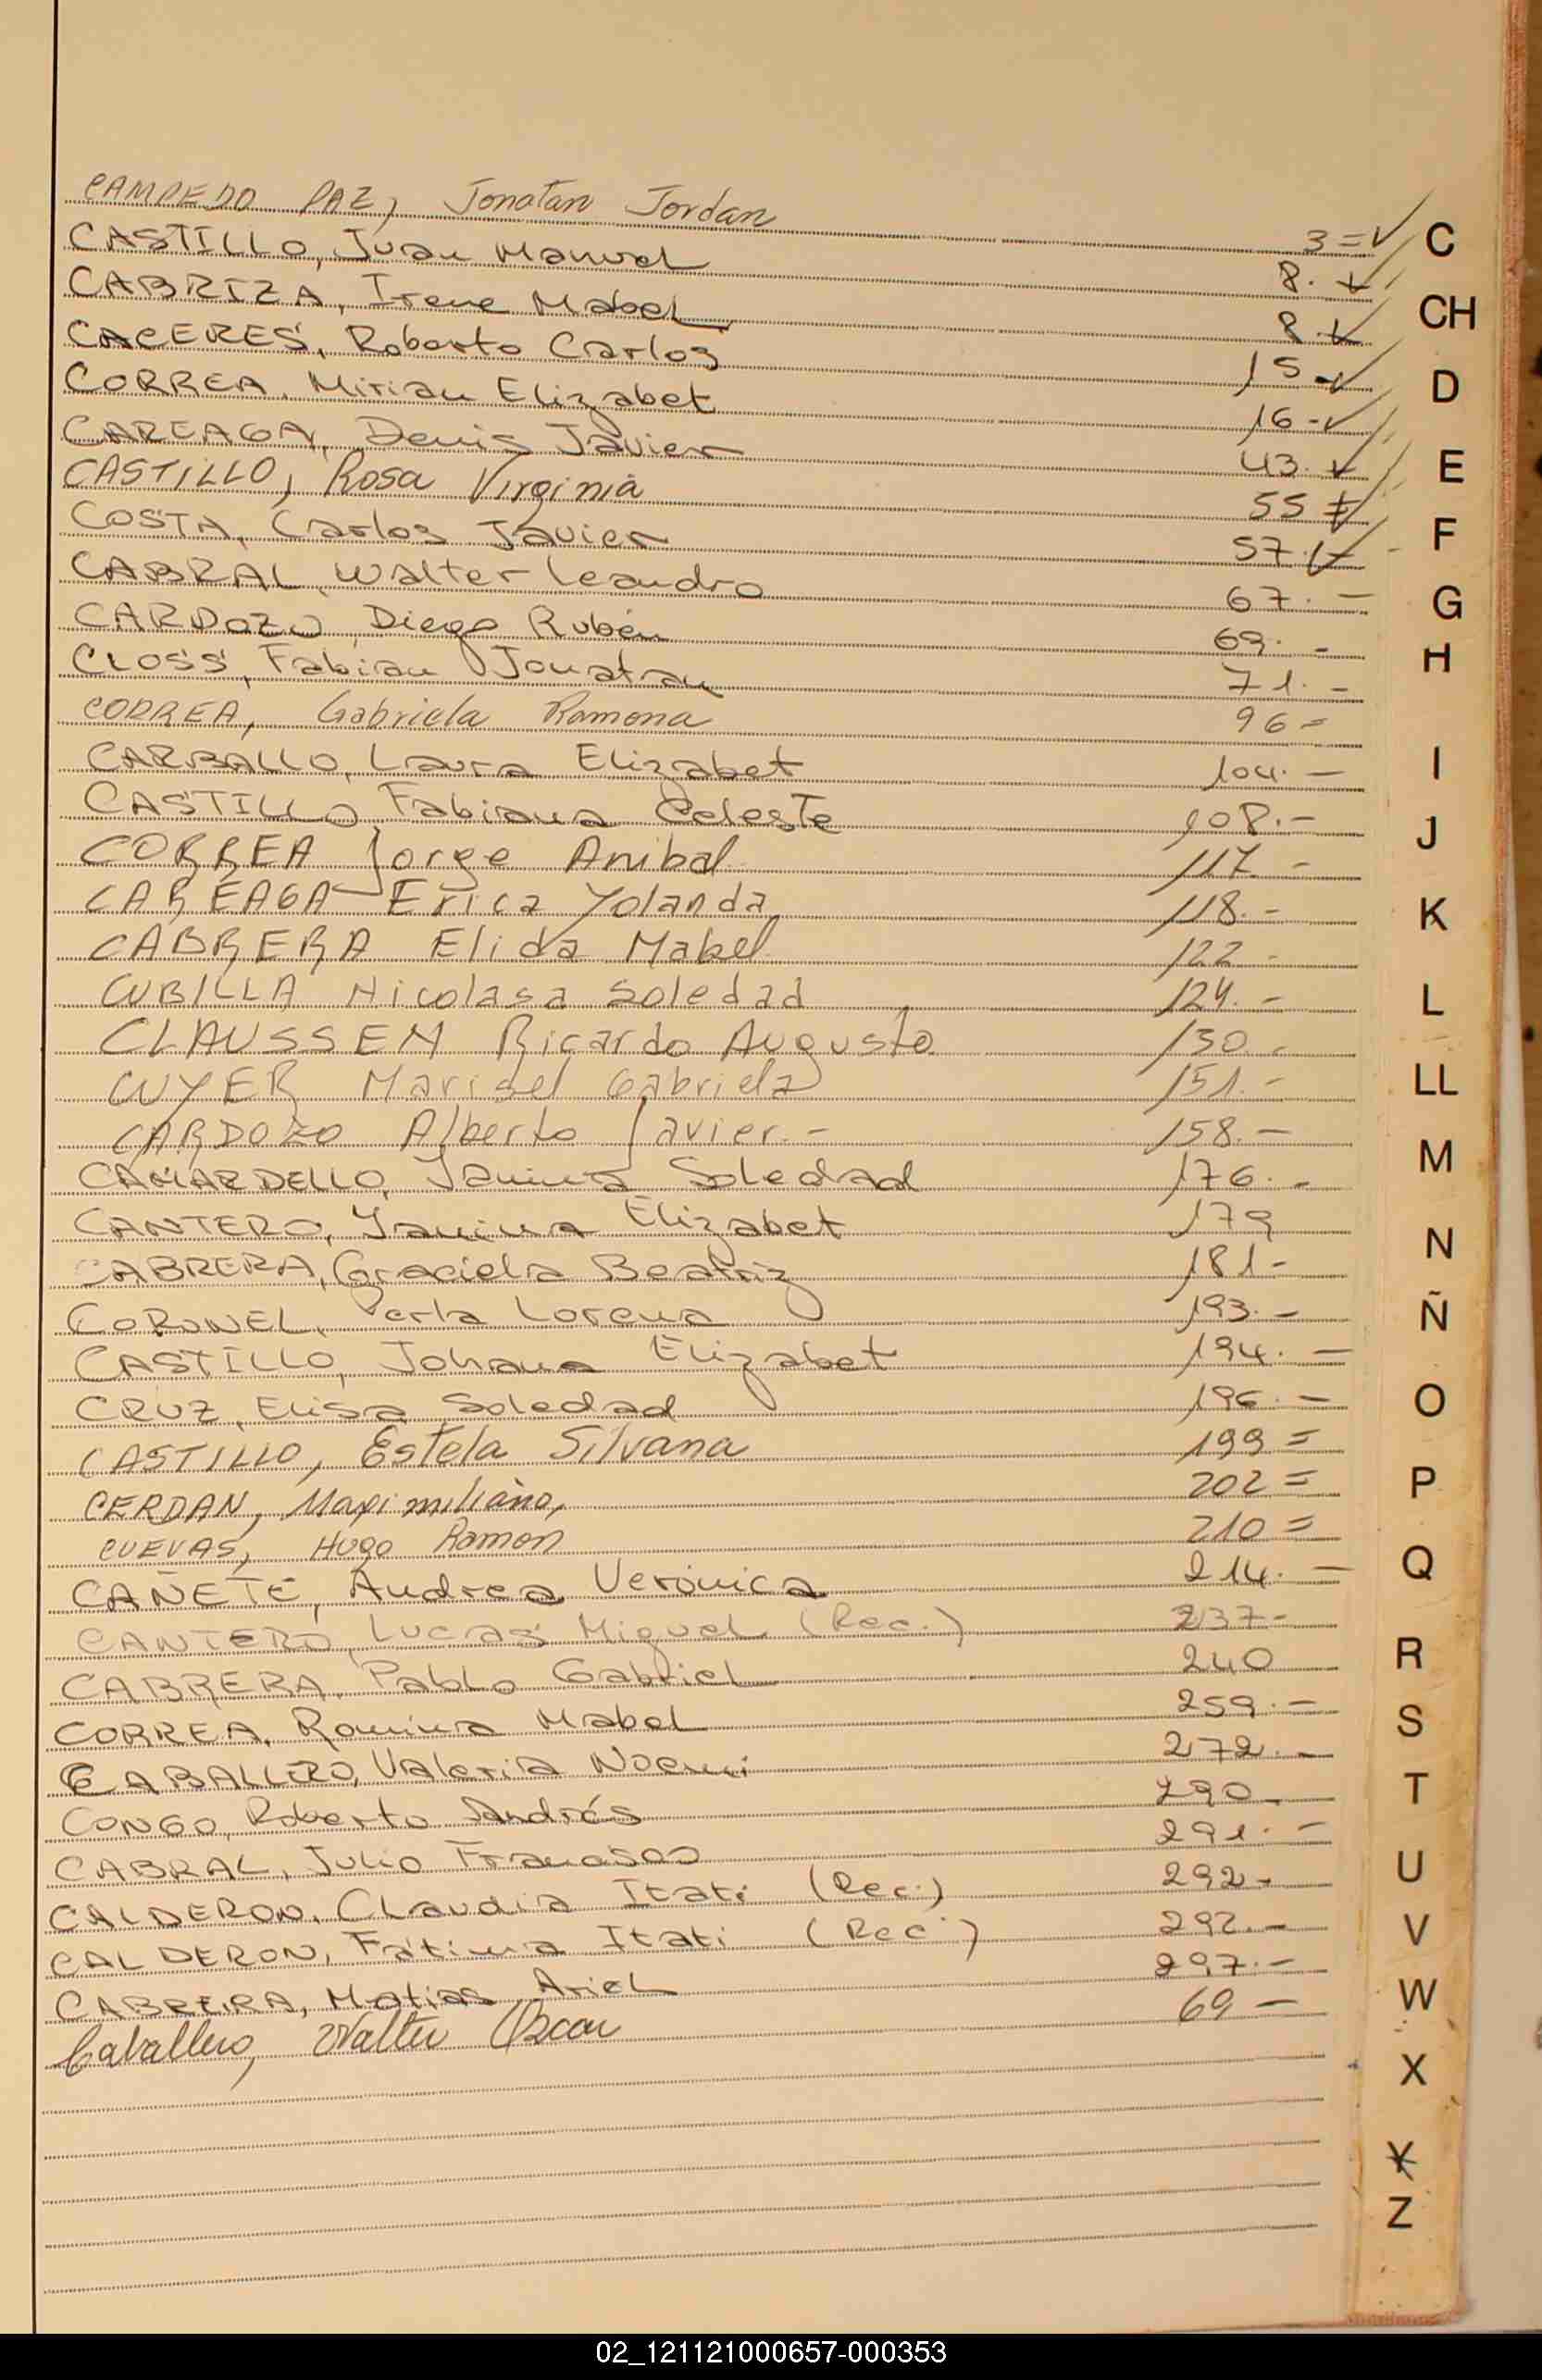 CAMPEDO PAZ, Jonatan Jordan 3=✓
CASTILLO, Juan Manuel 8.✓
CABRIZA, Irene Mabel 8✓
CACERES, Roberto Carlos 15-✓
CORREA, Mirian Elizabet 16-✓
CAREAGA, Denis Javier 43.✓
CASTILLO, Rosa Virginia 55=✓
COSTA, Carlos Javier 57.✓-
CABRAL, Walter Leandro 67.-
CARDOZO, Diego Rubén 69.-
CLOSS, Fabian Jonatan 71.-
CORREA, Gabriela Ramona 96=
CARBALLO, Laura Elizabet 104.-
CASTILLO, Fabiana Celeste 108.-
CORREA Jorge Anibal 117-
CAREAGA Erica Yolanda 118.-
CABRERA Elida Mabel 122-
CUBILLA Nicolasa Soledad 124.-
CLAUSSEN Ricardo Augusto 130.-
CUYER Marisel Gabriela 151.-
CARDOZO Alberto Javier.- 158.-
CAMARDELLO, Janina Soledad 176.-
CANTERO, Yanina Elizabet 179
CABRERA, Graciela Beatriz 181-
CORONEL, Perla Lorena 193.-
CASTILLO, Johana Elizabet 194.-
CRUZ, Elisa Soledad 196.-
CASTILLO, Estela Silvana 199=
CERDAN, Maximiliano, 202=
CUEVAS, Hugo Ramon 210=
CAÑETE, Andrea Verónica 214.-
CANTERO, Lucas Miguel (Rec.) 237-
CABRERA, Pablo Gabriel 240
CORREA, Romina Mabel 259.-
CABALLERO, Valeria Noemi 272.-
CONGO, Roberto Andrés 290-
CABRAL, Julio Francisco 291.-
CALDERON, Claudia Itati (Rec.) 292-
CALDERON, Fátima Itati (Rec.) 292.-
CABREIRA, Matias Ariel 297.-
Caballero, Walter Oscar 69-
C
CH
D
E
F
G
H
I
J
K
L
LL
M
N
Ñ
O
P
Q
R
S
T
U
V
W
X
Y
Z
02_121121000657-000353